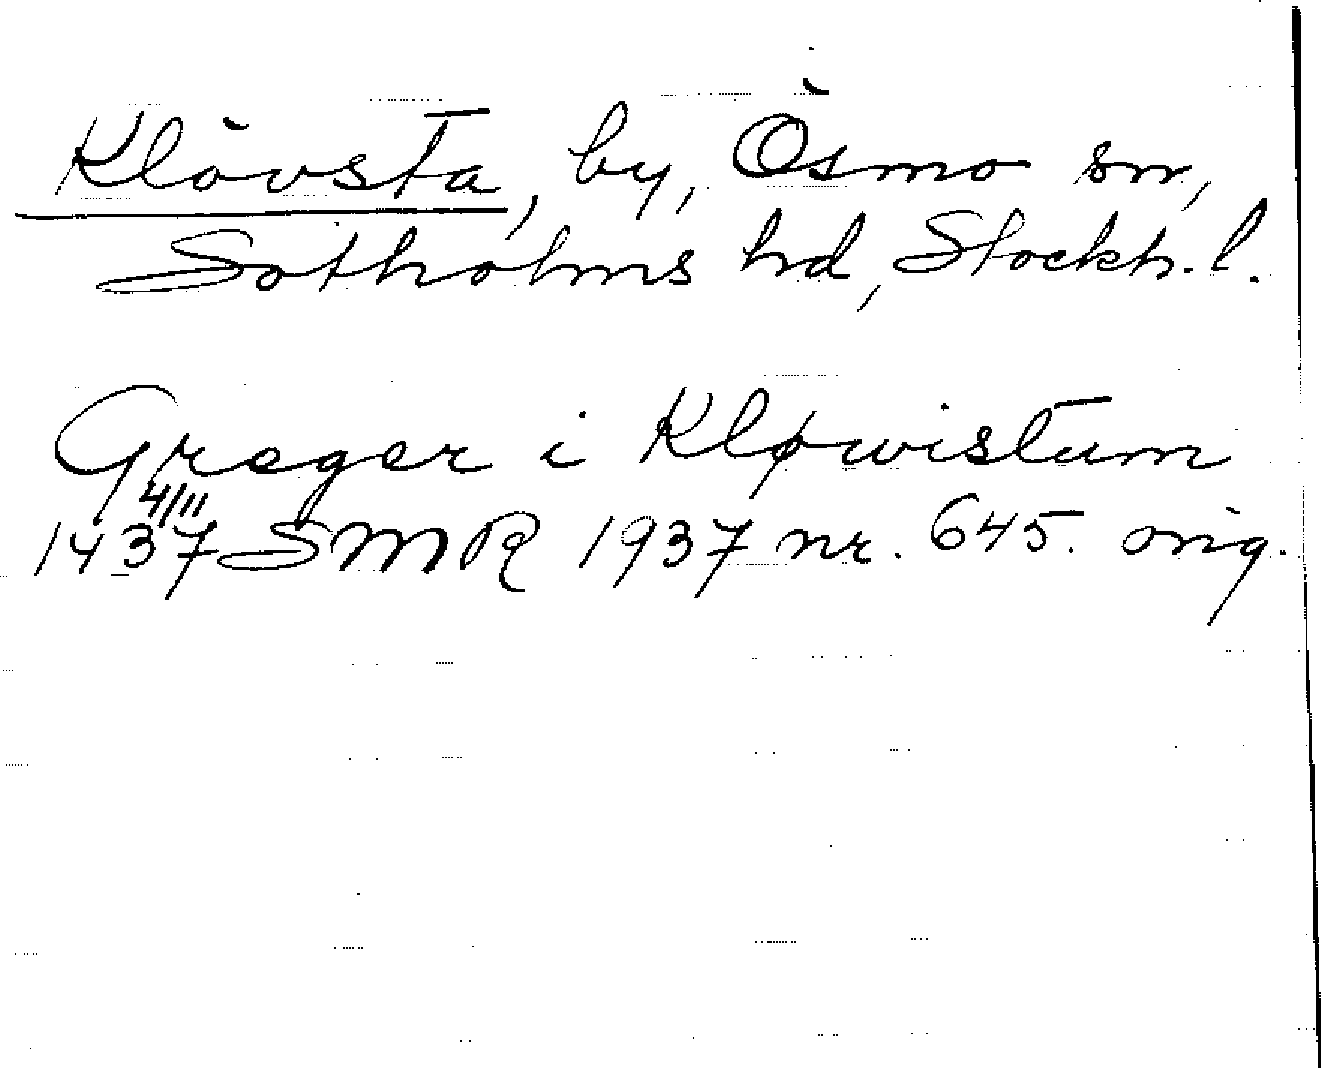 Klövsta, by, Ösmo sn,
Sotholms hd, Stockh. l.
Greger i Kløwistum
4/11
1437 SMR 1937 nr. 645. orig.